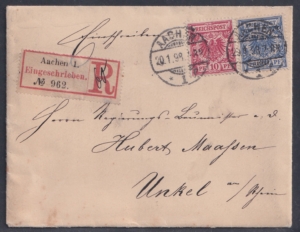 Einschreiben
Aachen 1.
Eingeschrieben.
№ 962.
R
AACHEN
20.1.99
REICHSPOST
10 PF 10
Herrn Regierungs-Baumeister a. D.
Hubert Maassen
Unkel a/Rhein